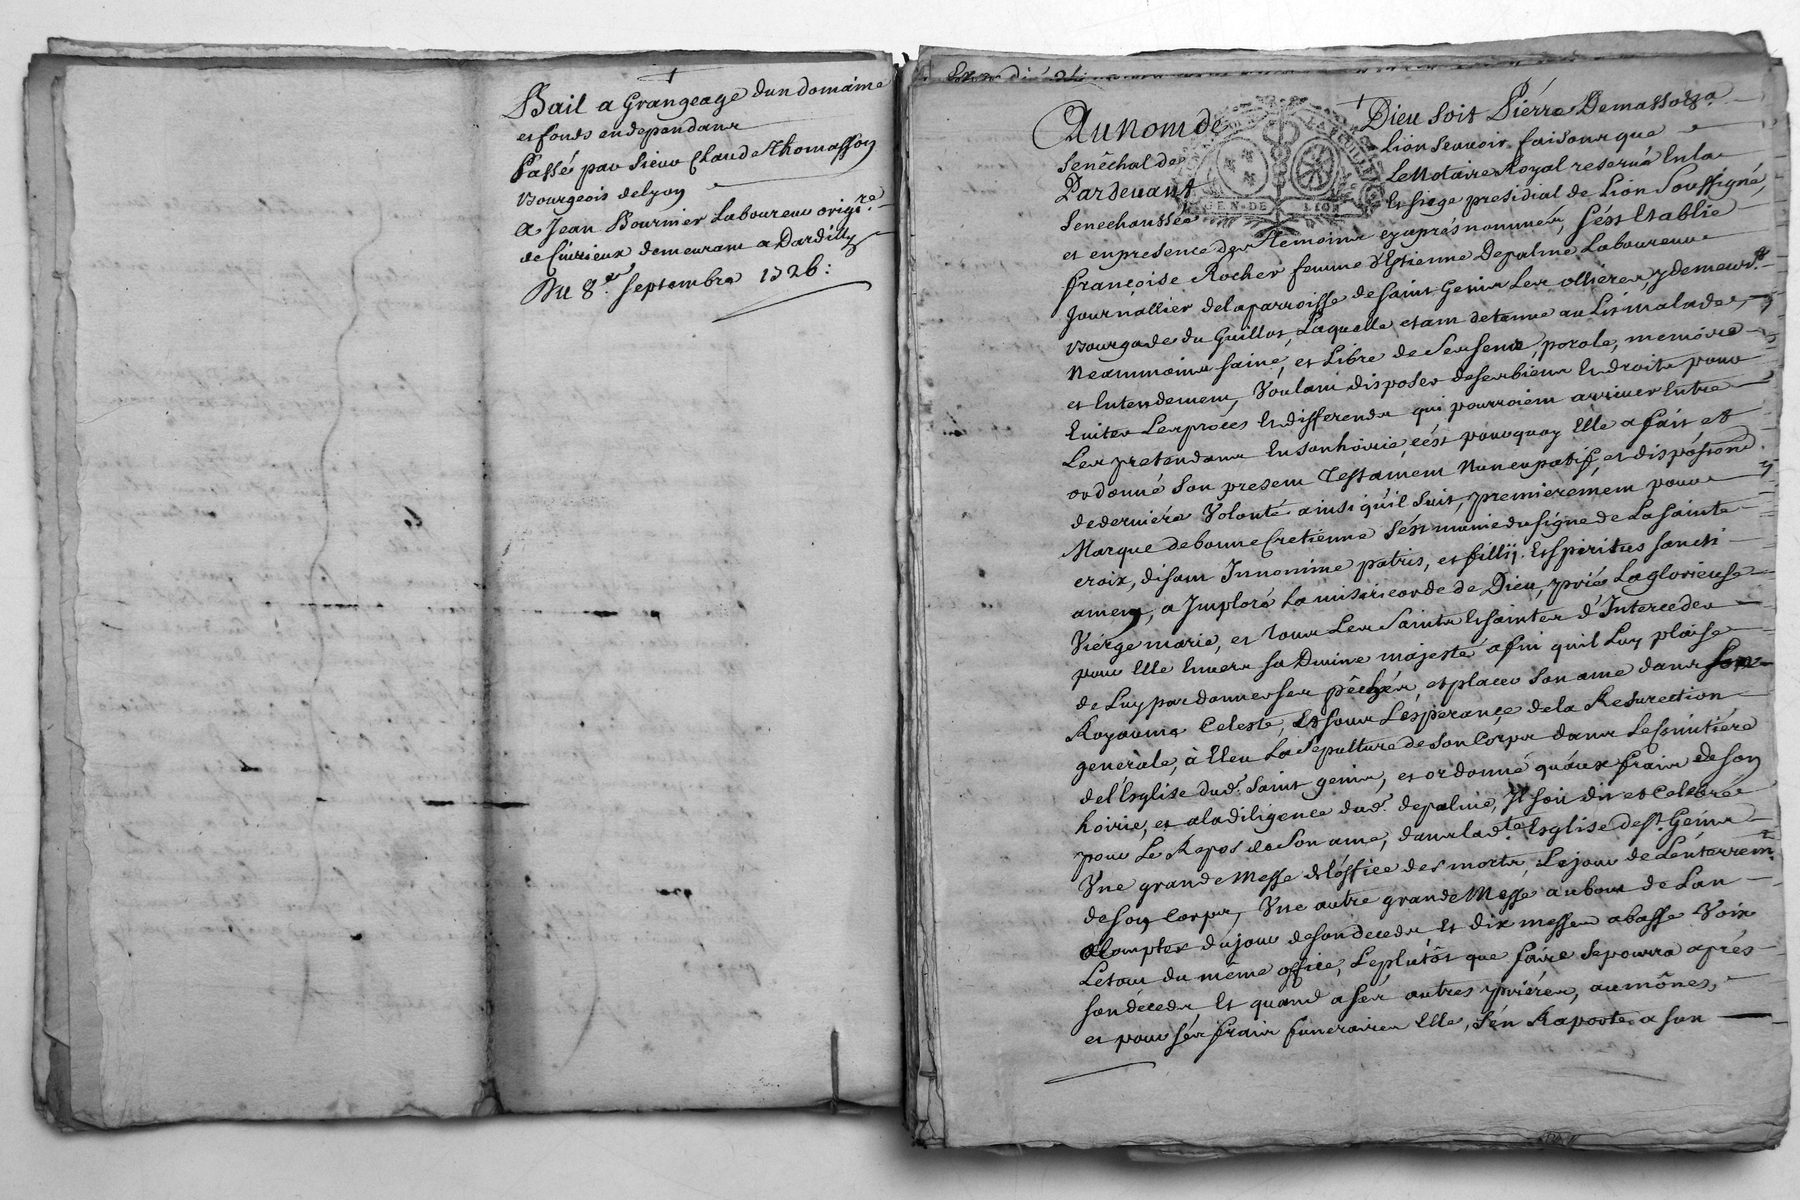 Bail a Grangeage dun domaine
et fonds en dependans
Passé par sieur Claude Thomasson
Bourgeois de Lyon
A Jean Bournier Laboureur origi.re
de Civrieux demeurant a Dardilly
Du 8.e Septembre 1726:
Au nom de Dieu soit Pierre Demassoza
Senêchal de Lion scavoir faisons que
Pardevant Le Notaire Royal reservé En la
Senechaussée Et siege presidial de Lion Soussigné,
et en presence des temoins cy après nommés, s'ést Etablie
françoise Rocher femme d'Estienne Depalme Laboureur
Journallier de la parroisse de saint Genis Les ollieres, y demeurt
Bourgade du Guillot, Laquelle etant detenue au Lit malade,
Neammoins saine, et Libre de ses sens, parole, memoire
et Entendement, Voulant disposer de ses biens Et droits pour
Eviter Les procés Et differends qui pourroient arriver Entre
Les pretendans En son hoirie, c'ést pourquoy Elle a fait et
ordonné son present Testament Nuncupatif, et disposiond
de derniére Volonté ainsi qu'il suit, premierement pour
Marque de bonne Cretienne s'ést munie du signe de La sainte
croix, disant In nomine patris, et fillij. Et spiritus sancti
amen, a Imploré La misericorde de Dieu, prié La glorieuse
Viérge marie, et tous Les Saints Et saintes d'Interceder
pour Elle Envers sa Divine majesté afin quil Luy plaise
de Luy pardonner ses pêchés, et placer son ame dans son
Royaume Celeste, Et sous L'esperance de la Resurection
generâle, à Eleu La sepulture de son Corps dans Le Simitiére
de l'Esglise dud. saint genis, et ordonné qu'aux frais de son
hoirie, et a la diligence dud. depalme, Il soit dit et Celebré
pour Le Repos de son ame, dans lad.te Esglise de St. Genis
Vne grande Messe Et l'office des morts, Le jour de L'enterremt
de son Corps, Vne autre grande Messe au bout de L'an
a Compter du jour de son deceds Et dix messes a basse Voix
Le tout du même office, Le plutôt que faire se pourra aprés
son déceds Et quand a sés autres priéres, aumônes,
et pour sés frais funeraires Elle, s'én Raporte a son